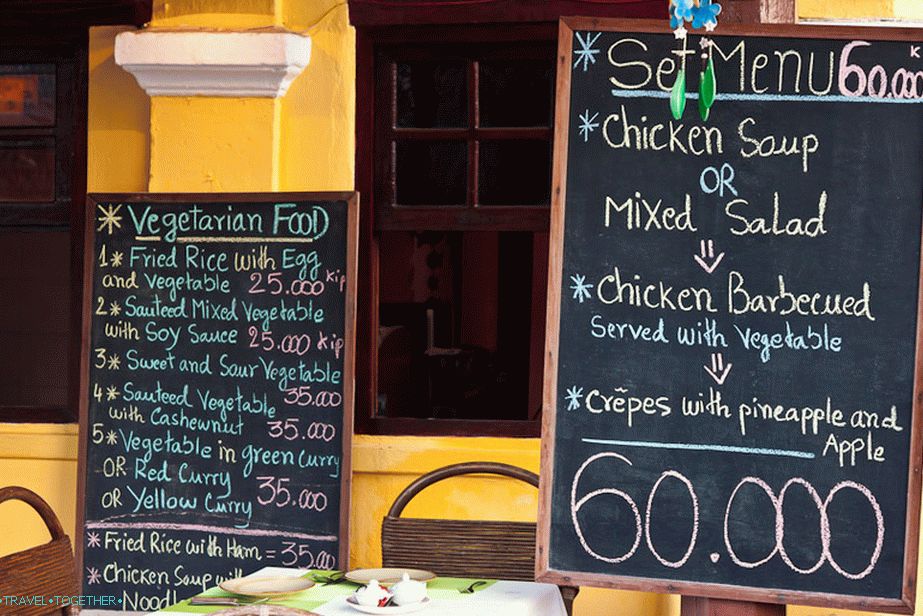 * Vegetarian Food
1* Fried Rice with Egg
and vegetable 25.000 Kip
2* Sauteed Mixed Vegetable
with Soy Sauce 25.000 Kip
3* Sweet and Sour Vegetable
35.000
4* Sauteed Vegetable
with Cashewnut 35.000
5* Vegetable in green curry
OR Red Curry
OR Yellow Curry 35.000
* Fried Rice with Ham = 35.000
* Chicken Soup with
Noodl
* Set Menu 60.000 K
* Chicken Soup
OR
Mixed Salad
* Chicken Barbecued
Served with Vegetable
* Crẽpes with pineapple and
Apple
60.000
•TRAVEL•TOGETHER•